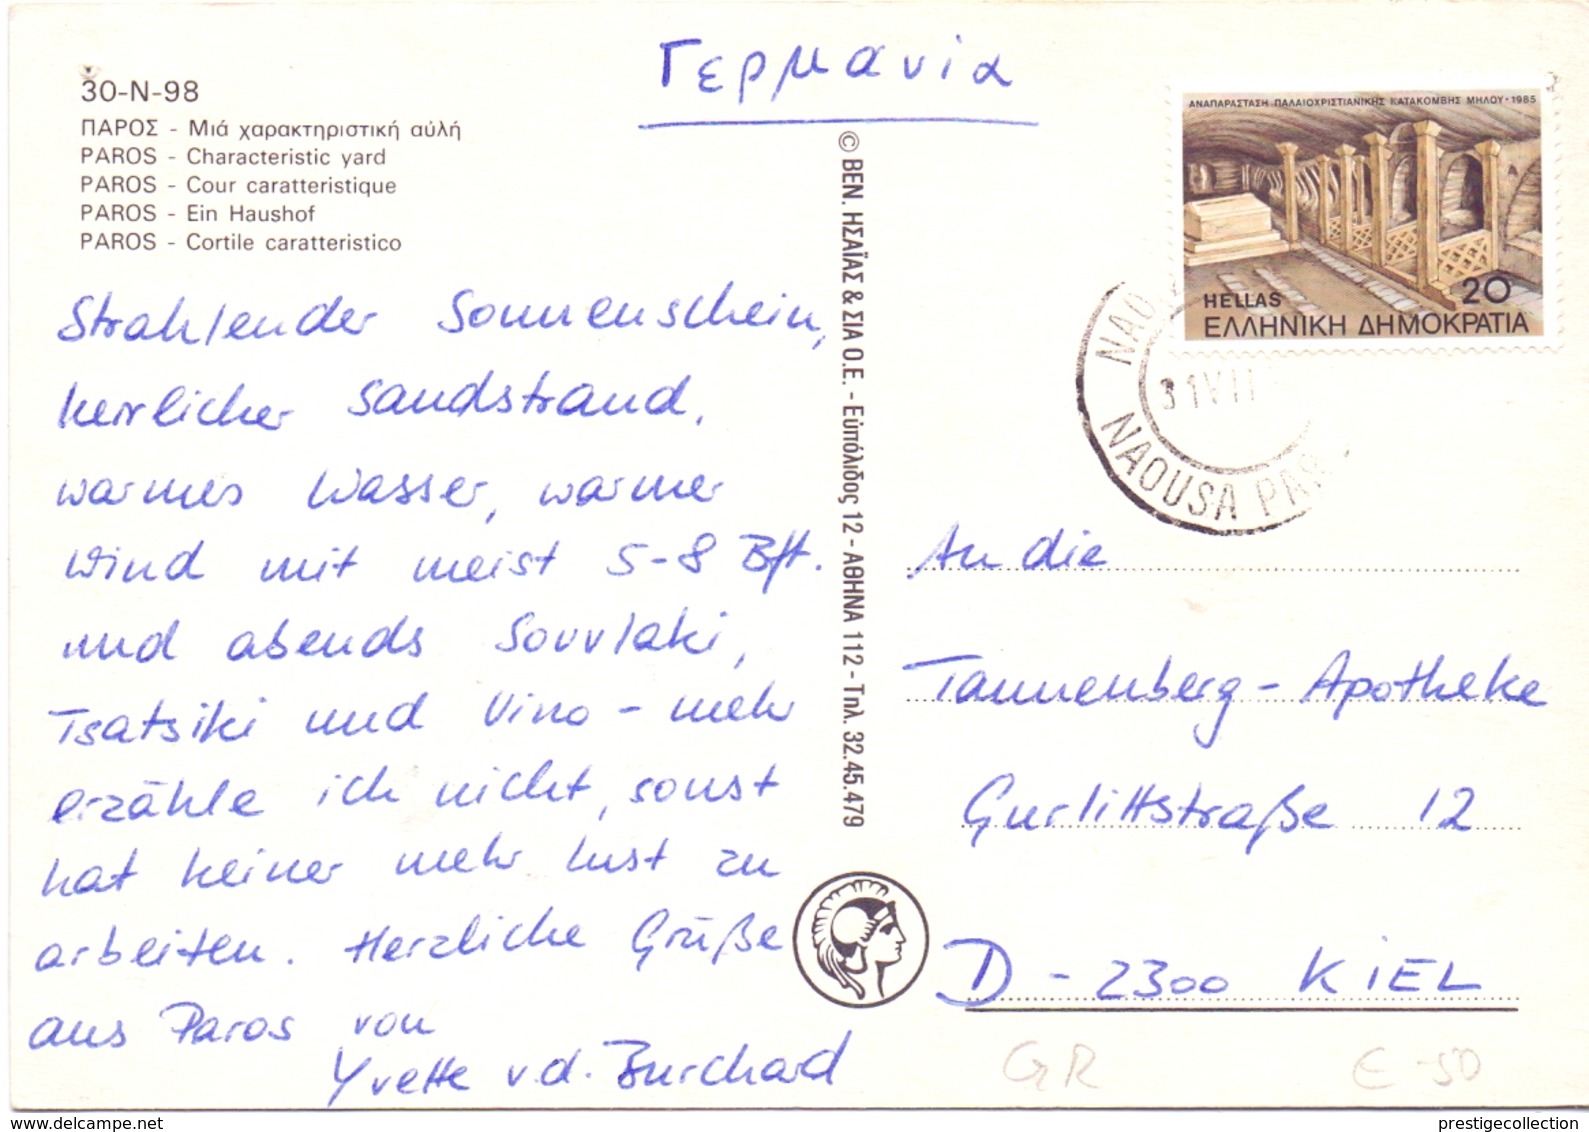 Γερμανία
30-N-98
ΠΑΡΟΣ - Μιά χαρακτηριστική αὐλή
PAROS - Characteristic yard
PAROS - Cour caratteristique
PAROS - Ein Haushof
PAROS - Cortile caratteristico
Strahlender Sonnenschein,
herrlicher Sandstrand,
warmes Wasser, warmer
Wind mit meist 5-8 Bft.
und abends Souvlaki,
Tsatsiki und Vino - mehr
erzähle ich nicht, sonst
hat keiner mehr Lust zu
arbeiten. Herzliche Grüße
aus Paros von
Yvette v.d. Burchard
© ΒΕΝ. ΗΣΑΪΑΣ & ΣΙΑ Ο.Ε. - Εὐπόλιδος 12 - ΑΘΗΝΑ 112 - Τηλ. 32.45.479
ΑΝΑΠΑΡΑΣΤΑΣΗ ΠΑΛΑΙΟΧΡΙΣΤΙΑΝΙΚΗΣ ΚΑΤΑΚΟΜΒΗΣ ΜΗΛΟΥ • 1985
HELLAS 20
ΕΛΛΗΝΙΚΗ ΔΗΜΟΚΡΑΤΙΑ
31 VII
NAOUSA PAR
An die
Tannenberg-Apotheke
Gurlittstraße 12
D-2300 KIEL
GR € -50
delcampe.net
prestigecollection